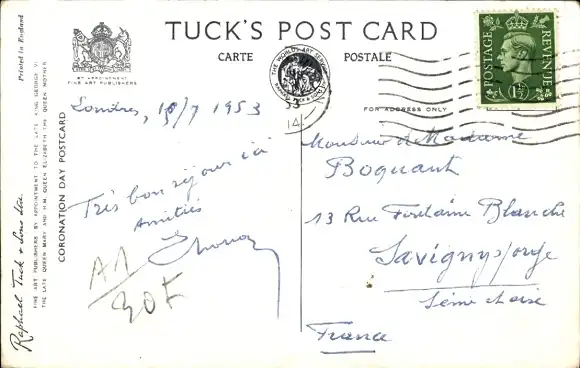 TUCK'S POST CARD
CARTE POSTALE
BY APPOINTMENT
FINE ART PUBLISHERS
THE WORLD'S ART SERVICE
FOR ADDRESS ONLY
POSTAGE
REVENUE
1½
53
14
Printed in England
Raphael Tuck & Sons Ltd.
FINE ART PUBLISHERS BY APPOINTMENT TO THE LATE KING GEORGE VI
THE LATE QUEEN MARY AND H.M. QUEEN ELIZABETH THE QUEEN MOTHER
CORONATION DAY POSTCARD
Londres, 18/7 1953
Très bon séjour ici
Amitiés
A1
30F
Monsieur et Madame
Boquant
13 Rue Fontaine Blanche
Savigny s/ orge
Seine et oise
France